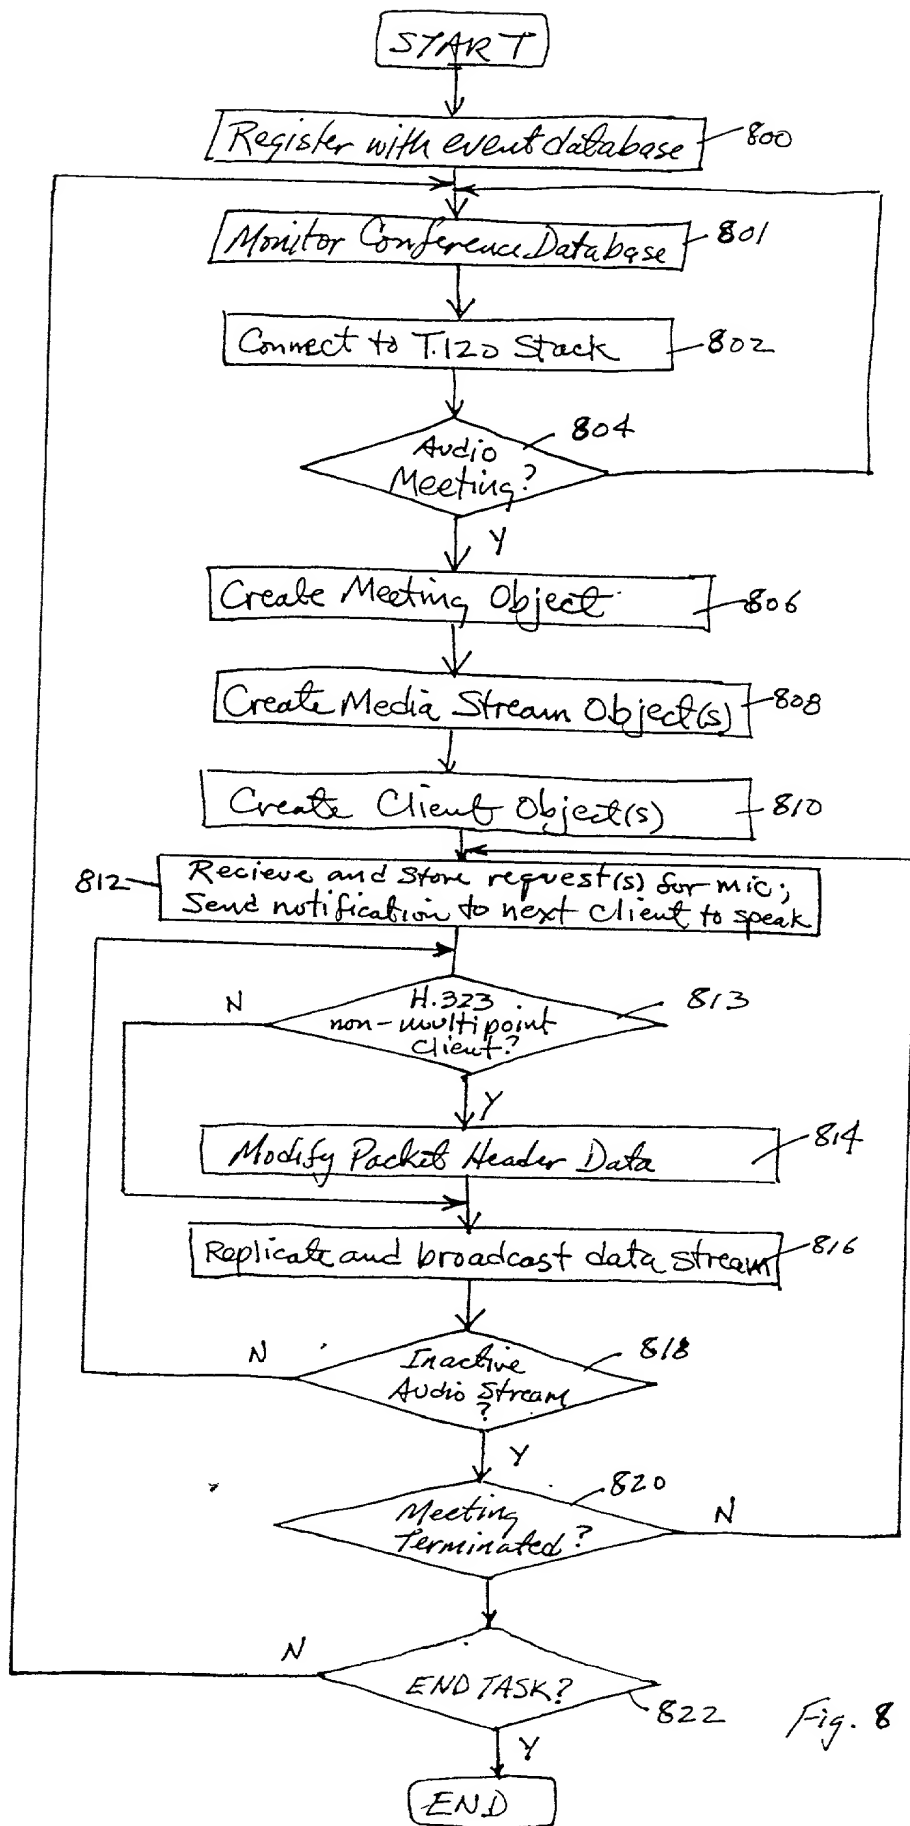 START
Register with event database
800
Monitor Conference Database
801
Connect to T.120 Stack
802
Audio
Meeting?
804
Y
Create Meeting Object
806
Create Media Stream Object(s)
808
Create Client Object(s)
810
812
Recieve and Store request(s) for mic;
Send notification to next client to speak
N
H.323
non-multipoint
Client?
813
Y
Modify Packet Header Data
814
Replicate and broadcast data stream
816
N
Inactive
Audio Stream
?
818
Y
Meeting
Terminated?
820
N
N
END TASK?
822
Y
Fig. 8
END